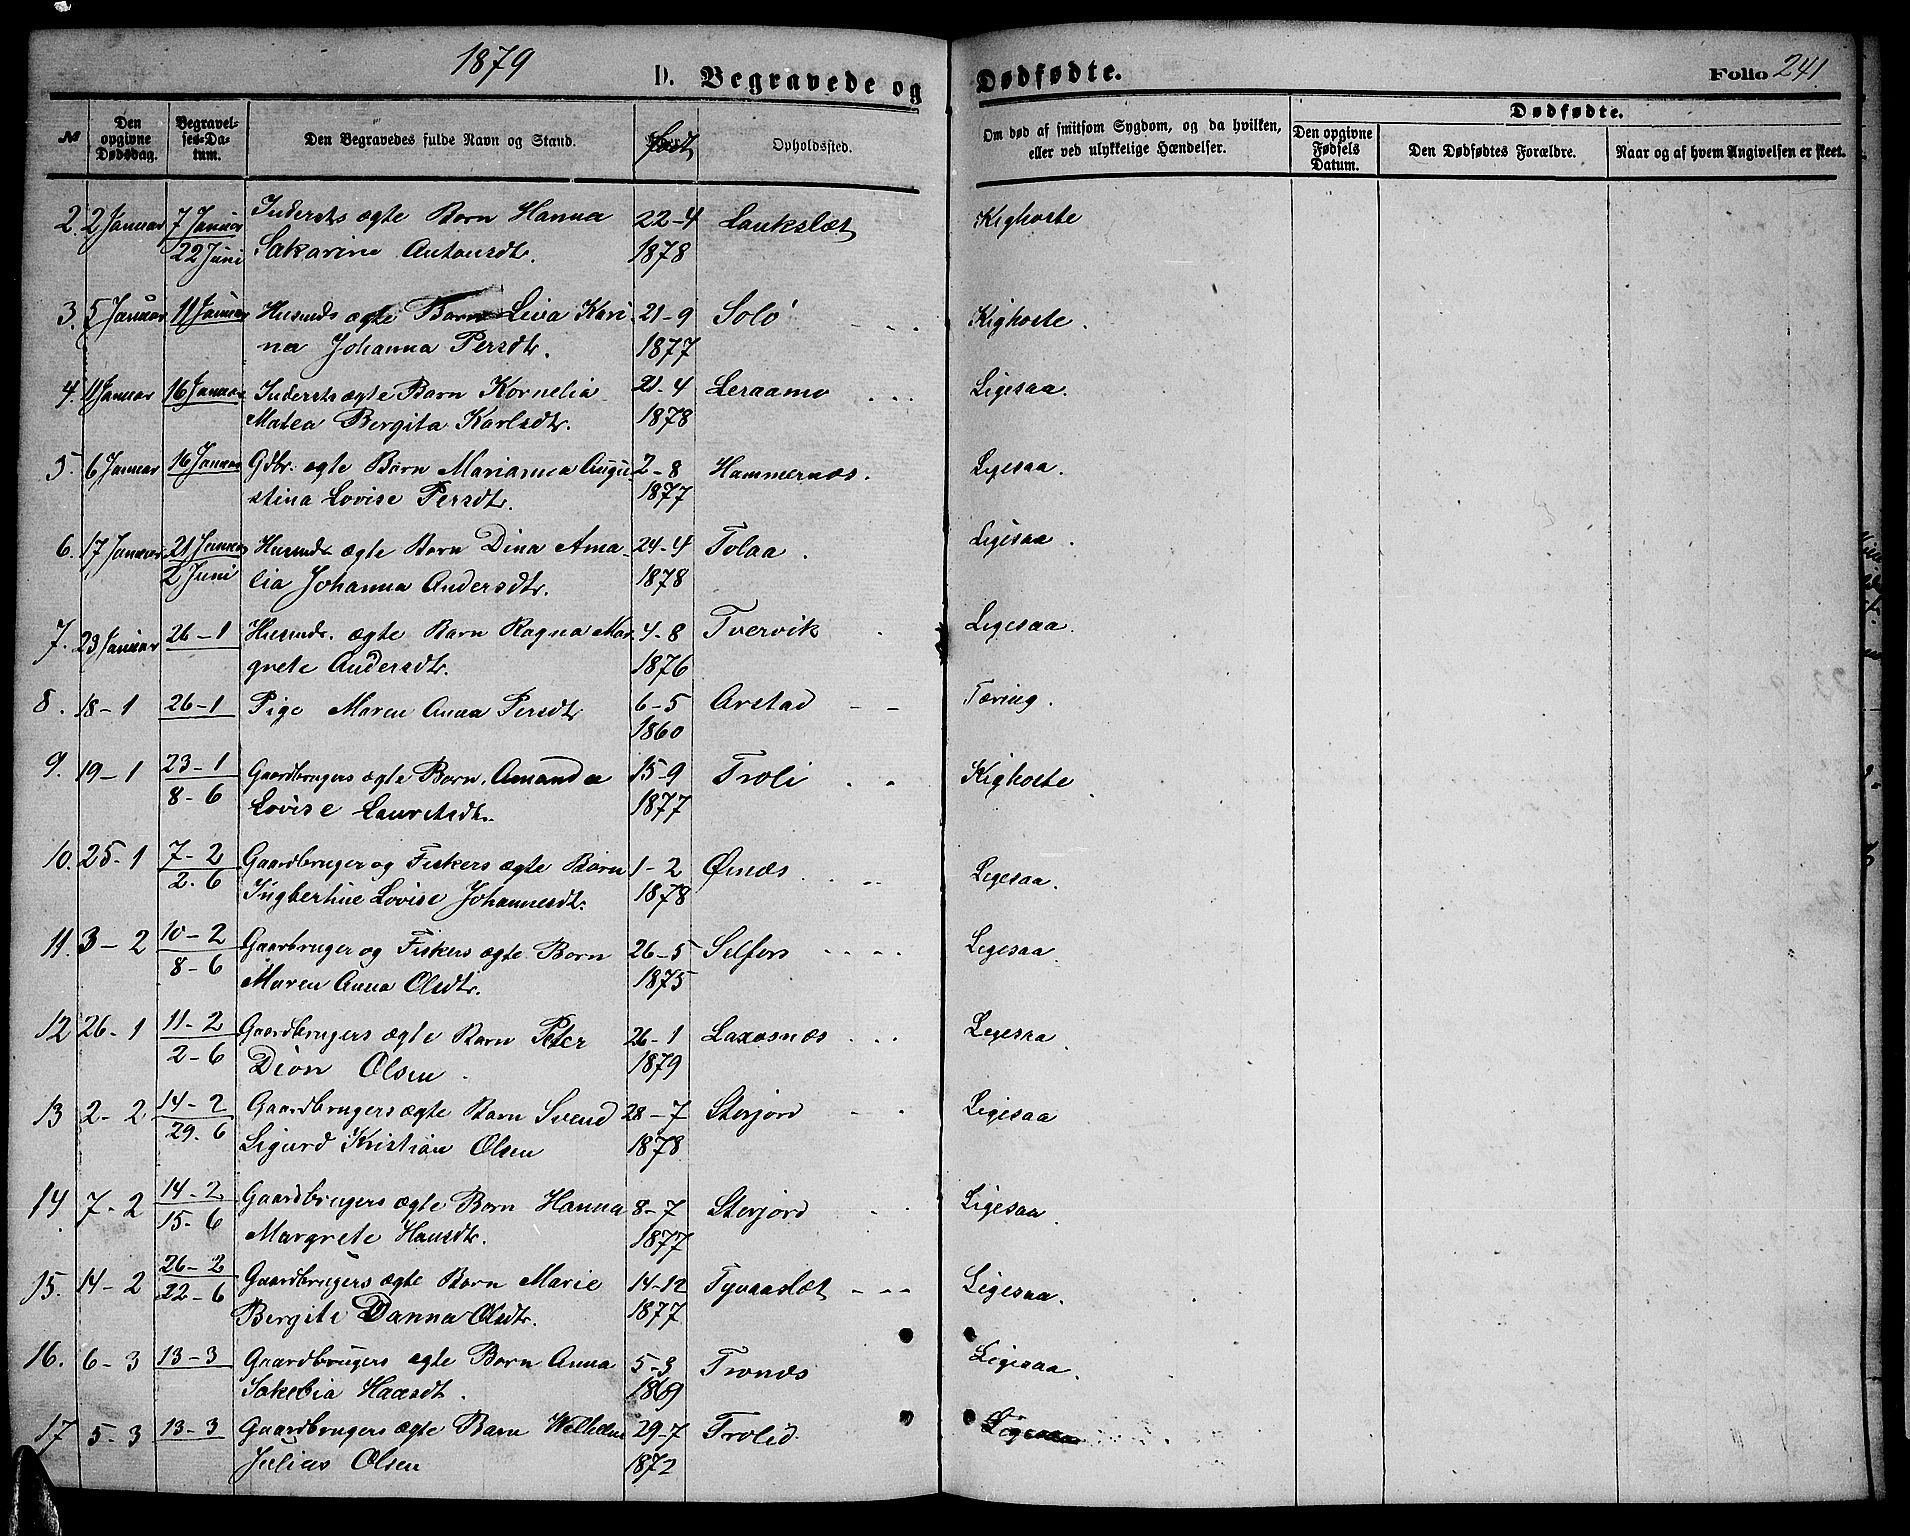 1879
D. Begravede og Dødfødte. Folio 241
№ Den opgivne Dødsdag. Begravelses-Datum. Den Begravedes fulde Navn og Stand. født Opholdssted. Om død af smitsom Sygdom, og da hvilken, eller ved ulykkelige Hændelser. Dødfødte. Den opgivne Fødsels Datum. Den Dødfødtes Forældre. Naar og af hvem Angivelsen er skeet.
2. 2 Januar 7 Januar Indersts ægte Barn Hanna 22-4 Laukslæt Kighoste
22 Juni Sakarine Antonsdt. 1878
3. 5 Januar 11 Januar Husmds ægte Barn Liva Kari- 21-9 Solø Kighoste.
na Johanna Persdt. 1877
4. 11 Januar 16 Januar Inderstsægte Barn Kornelia 21-4 Leraamo Ligesaa.
Matea Bergita Karlsdt. 1878
5. 6 Januar 16 Januar Gdbr. ægte Barn Marianna Augu- 2-8 Hammernæs. Ligesaa.
stina Lovise Persdt. 1877
6. 17 Januar 21 Januar Husmds ægte Barn Dina Ama- 24-4 Tolaa. Ligesaa.
2 Juni lia Johanna Andersdt. 1878
7. 23 Januar 26-1 Husmds. ægte Barn Ragna Mar- 4-8 Tvervik Ligesaa.
grete Andersdt. 1876
8. 18-1 26-1 Pige Maren Anna Persdt 6-5 Arstad Tæring.
1860
9. 19-1 23-1 Gaardbrugers ægte Barn Amanda 15-9 Troli Kighoste
8-6 Lovise Lauritsdt. 1877
10. 25-1 7-2 Gaardbruger og Fiskers ægte Barn 1-2 Ønæs. Ligesaa.
2-6 Ingbertine Lovise Johannesdt. 1878
11. 3-2 10-2 Gaarbruger og Fiskers ægte Barn 26-5 Selfors Ligesaa
8-6 Maren Anna Olsdt. 1875
12 26-1 11-2 Gaardbrugers ægte Barn Peter 26-1 Laxosnæs Ligesaa
2-6 Dion Olsen. 1879
13 2-2 14-2 Gaardbrugers ægte Barn Svend 28-7 Storjord Ligesaa
29-6 Sigurd Kristian Olsen 1878
14. 7-2 14-2 Gaardbrugers ægte Barn Hanna 8-7 Storjord Ligesaa
15-6 Margrete Hansdt. 1877
15. 14-2 26-2 Gaardbrugers ægte Barn Marie 14-12 Tyvaaslæt Ligesaa.
22-6 Bergite Danna Olsdt. 1877
16. 6-3 13-3 Gaardbrugers ægte Barn Anna 5-3 Tronæs Ligesaa.
Jakobia Hansdt. 1869
17 5-3 13-3 Gaardbrugers ægte Barn Welhelm 29-7 Trolid. Ligesaa
Julias Olsen 1872